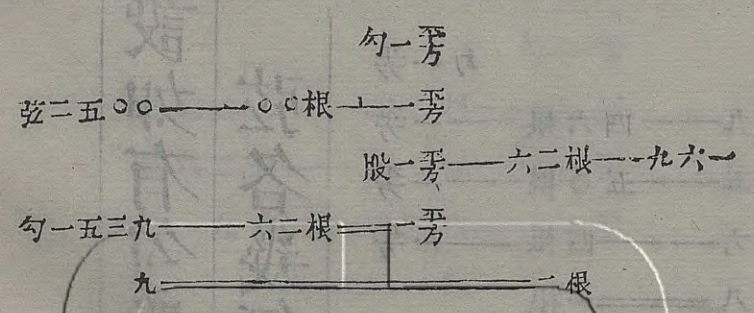 勾一平方
弦二五〇〇——一〇〇根⊥一平方
股一平方——六二根——九六一
勾一五三九——六二根══一平方
九══一根